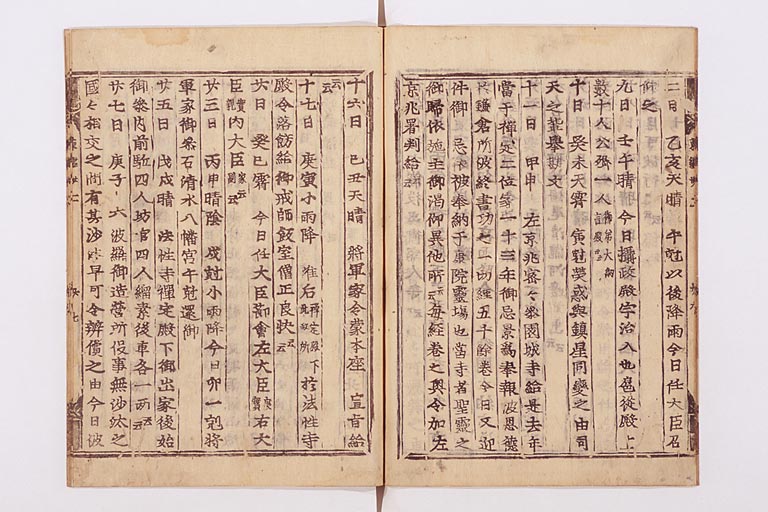 二日 乙亥天晴 午尅以後降雨今日任大臣召
仰云
九日 壬午晴晴 今日攝政殿宇治入也扈從殿上
數十人公卿一人
十日 癸未天霽 寅尅熒惑與鎮星同變之由司
天之輩擧勘文
十一日 甲申 左京兆密々參園城寺給是去年
當于禪定二位家 十三年御忌景爲奉報彼恩德
於鎌倉所被終書功之 切經五千餘巻今日又迎
件御 忌 被奉納于 院靈場也當寺者聖靈之
御歸依施主御渇仰異他所云每經巻之奧令加左
京兆署判給云
十六日 己丑天晴 將軍家令蒙本座 宣旨給
云云
十七日 庚寅小雨降 准后禪定殿下於法性寺
殿令落飾給御戒師飯室僧正良快云云
廿日 癸巳霽 今日任大臣節會左大臣 右大
臣 内大臣家 云云
廿三日 丙申晴陰 戌尅小雨降今日卯一尅將
軍家御參石清水八幡宮午尅還御
廿五日 戊戌晴 法性寺禪定殿下御出家後始
御參内前駈四人坊官四人緇素後車各一兩云云
廿七日 庚子 六波羅御造營所役事無沙汰之
國々相交之間有其沙汰早可令辨償之由今日波